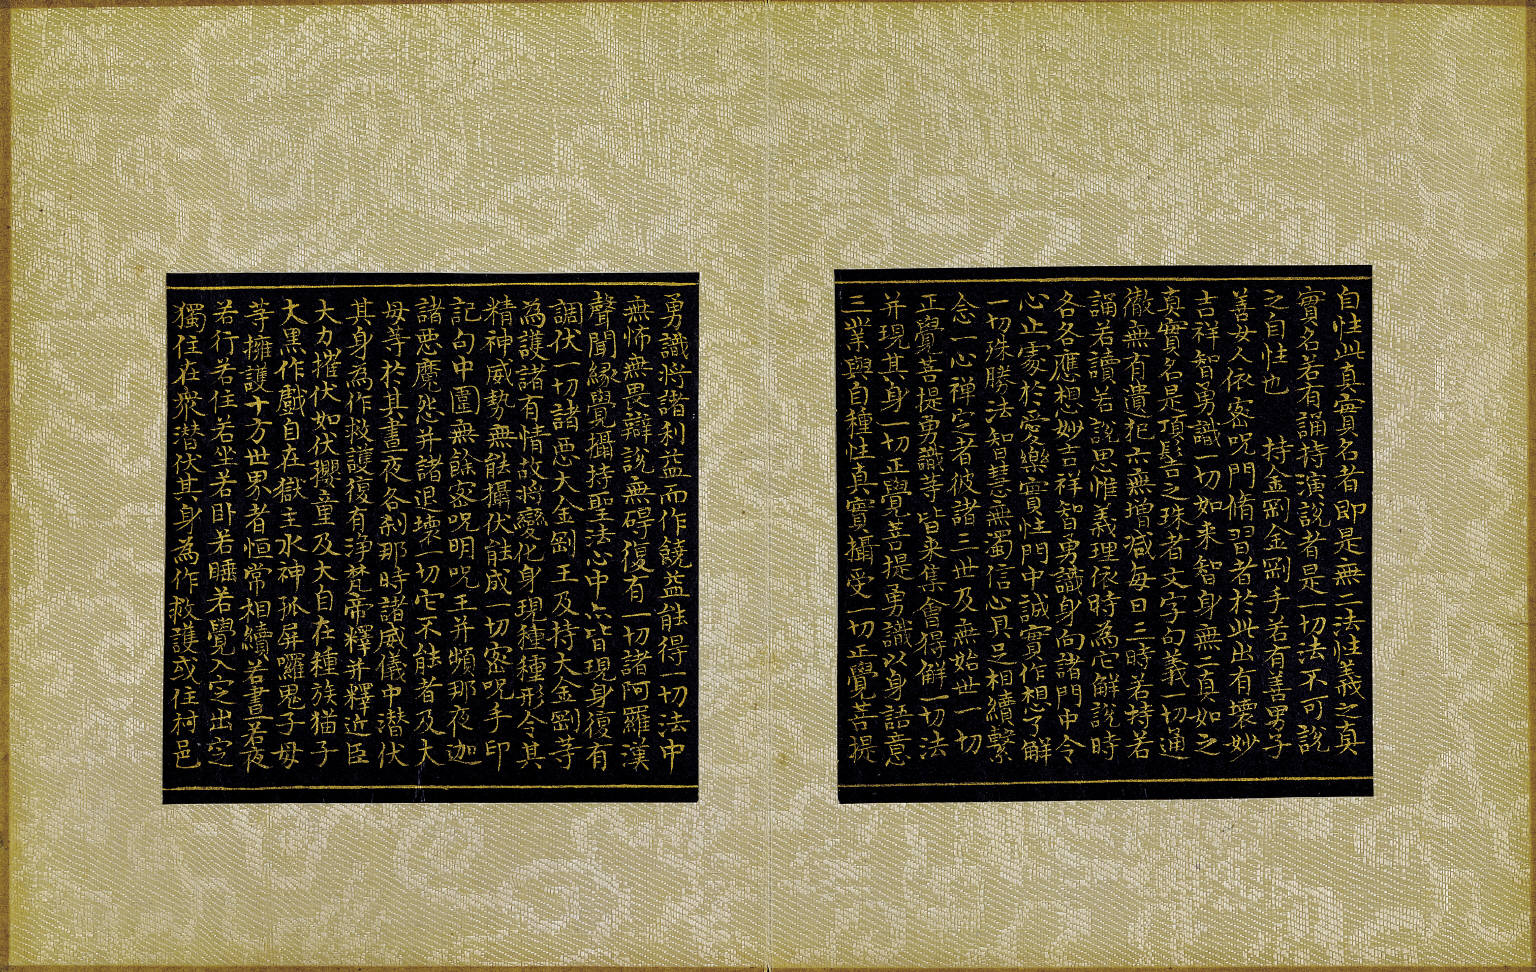 自性此真實名者即是無二法性義之真
實名若有誦持演說者是一切法不可說
之自性也　持金剛金剛手若有善男子
善女人依密呪門脩習者於此出有壞妙
吉祥智勇識一切如来智身無二真如之
真實名是頂髻之珠者文字句義一切通
徹無有遺犯亦無增減每日三時若持若
誦若讀若說思惟義理依時為它解說時
各各應想妙吉祥智勇識身向諸門中令
心止處於愛樂實性門中誠實作想了解
一切殊勝法智慧無濁信心具足相續繫
念一心禅定者彼諸三世及無始世一切
正覺菩提勇識等皆来集會得解一切法
并現其身一切正覺菩提勇識以身語意
三業與自種性真實攝受一切正覺菩提
勇識將諸利益而作饒益能得一切法中
無怖無畏辯說無碍復有一切諸阿羅漢
聲聞緣覺攝持聖法心中亦皆現身復有
調伏一切諸悪大金剛王及持大金剛等
為護諸有情故將變化身現種種形令其
精神威勢無能攝伏能成一切密呪手印
記句中圍無餘密呪明呪王并頻那夜迦
諸悪魔怨并諸退壞一切它不能者及大
母等於其晝夜各剎那時諸威儀中潜伏
其身為作救護復有浄梵帝釋并釋近臣
大力摧伏如伏孾童及大自在種族猫子
大黑作戲自在獄主水神孤屏囉鬼子母
等擁護十方世界者恒常相續若晝若夜
若行若住若坐若卧若睡若覺入定出定
獨住在衆潜伏其身為作救護或住祠邑